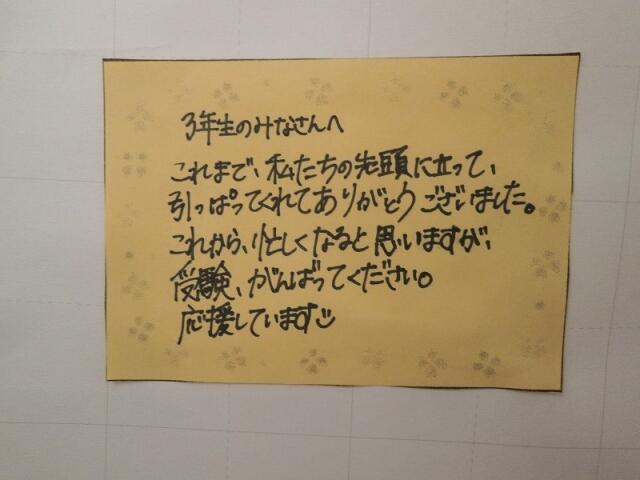 3年生のみなさんへ
これまで、私たちの先頭に立って、
引っぱってくれてありがとうございました。
これから、忙しくなると思いますが、
受験、がんばってください。
応援しています